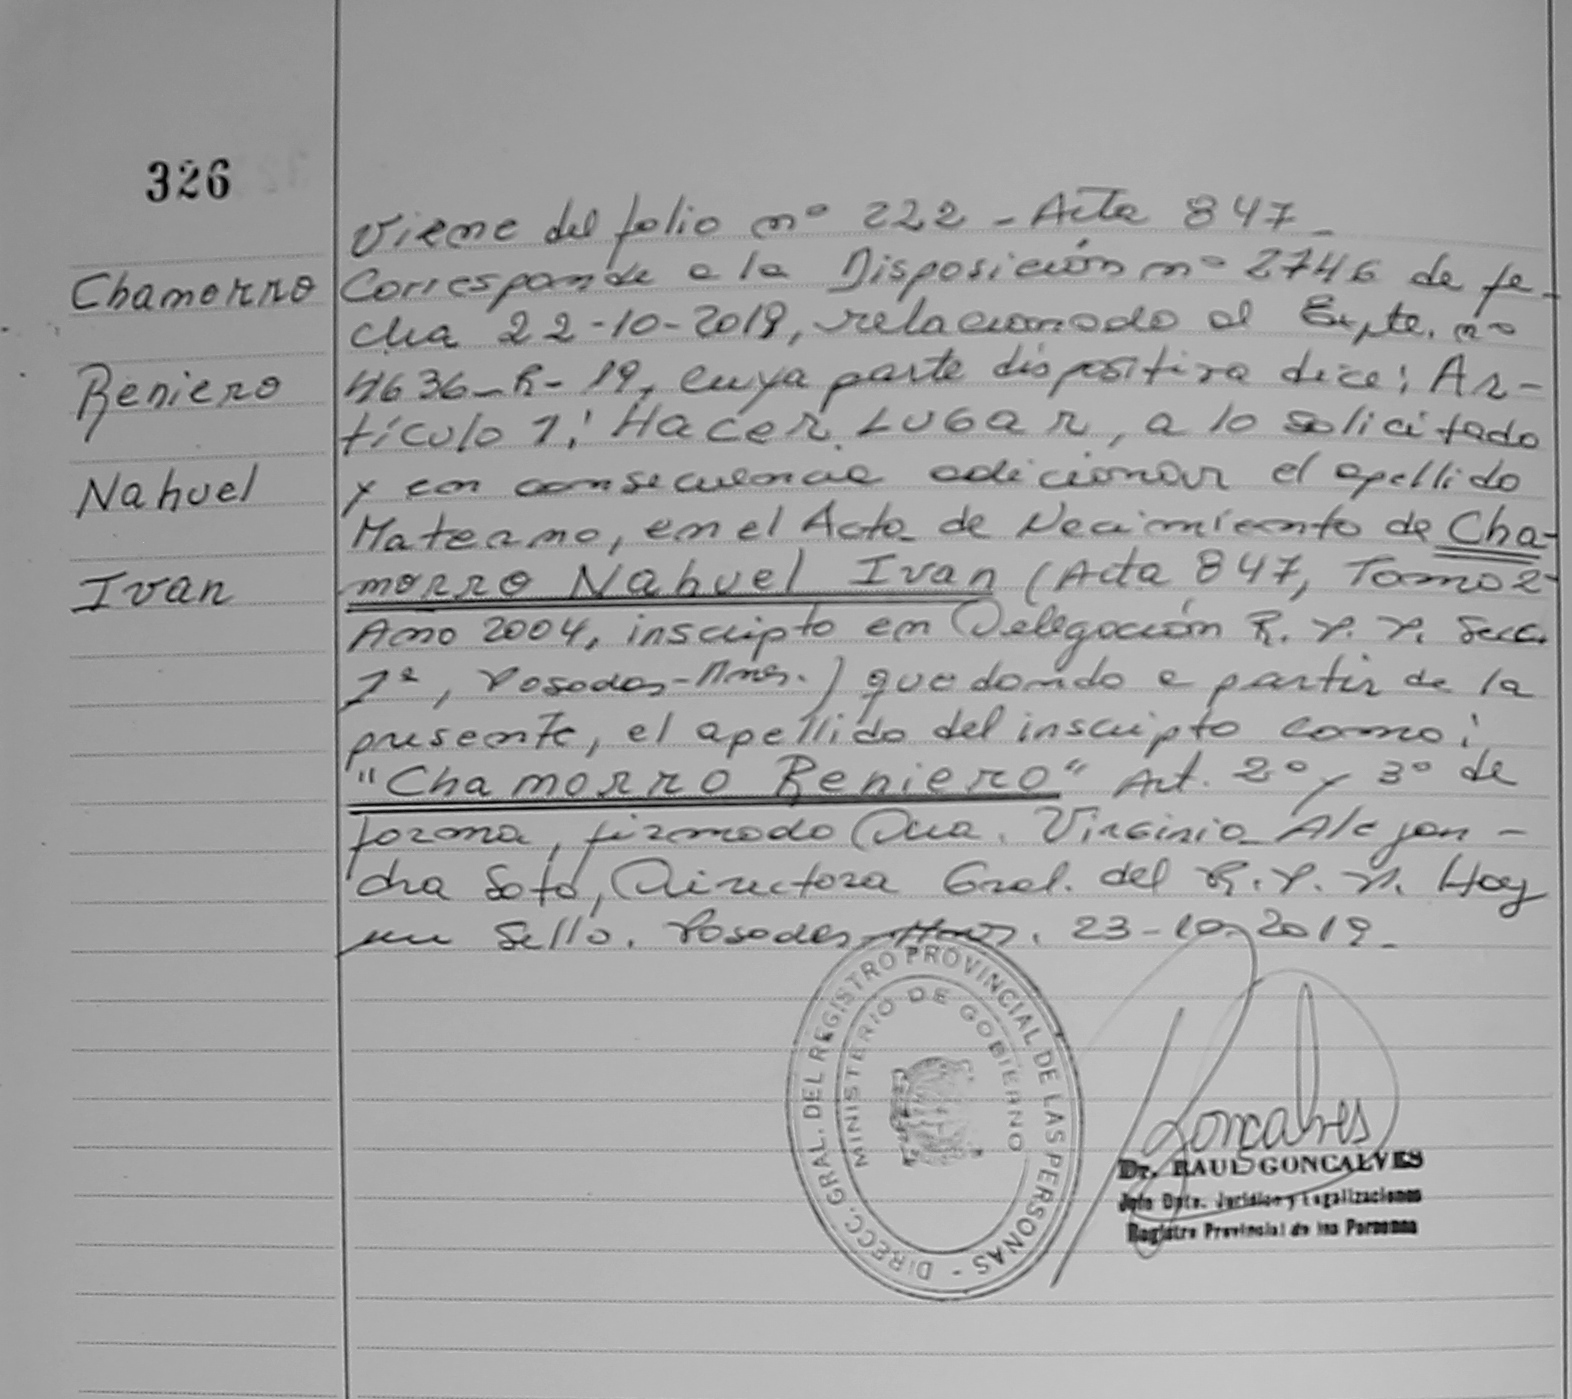 326
Viene del folio nº 222 - Acta 847.
Chamorro
Reniero
Nahuel
Ivan
Corresponde a la Disposición nº 2746 de fe-
cha 22-10-2019, relacionado al Expte. nº
4636-R-19, cuya parte dispositiva dice: Ar-
tículo 1: Hacer Lugar, a lo solicitado
y en consecuencia adicionar el apellido
Materno, en el Acta de Nacimiento de Cha-
morro Nahuel Ivan (Acta 847, Tomo 2-
Año 2004, inscripto en Delegación R. P. P. Secc.
1ª, Posadas-Mnes.) quedando a partir de la
presente, el apellido del inscripto como:
"Chamorro Reniero" Art. 2º y 3º de
forma, firmado Dra. Virginia Alejan-
dra Soto, Directora Gral. del R.P.P. Hay
un Sello. Posadas-Mnes. 23-10-2019.
DIRECC. GRAL. DEL REGISTRO PROVINCIAL DE LAS PERSONAS -
MINISTERIO DE GOBIERNO
Goncalves
Dr. RAUL GONCALVES
Jefe Dpto. Jurídico y Legalizaciones
Registro Provincial de las Personas